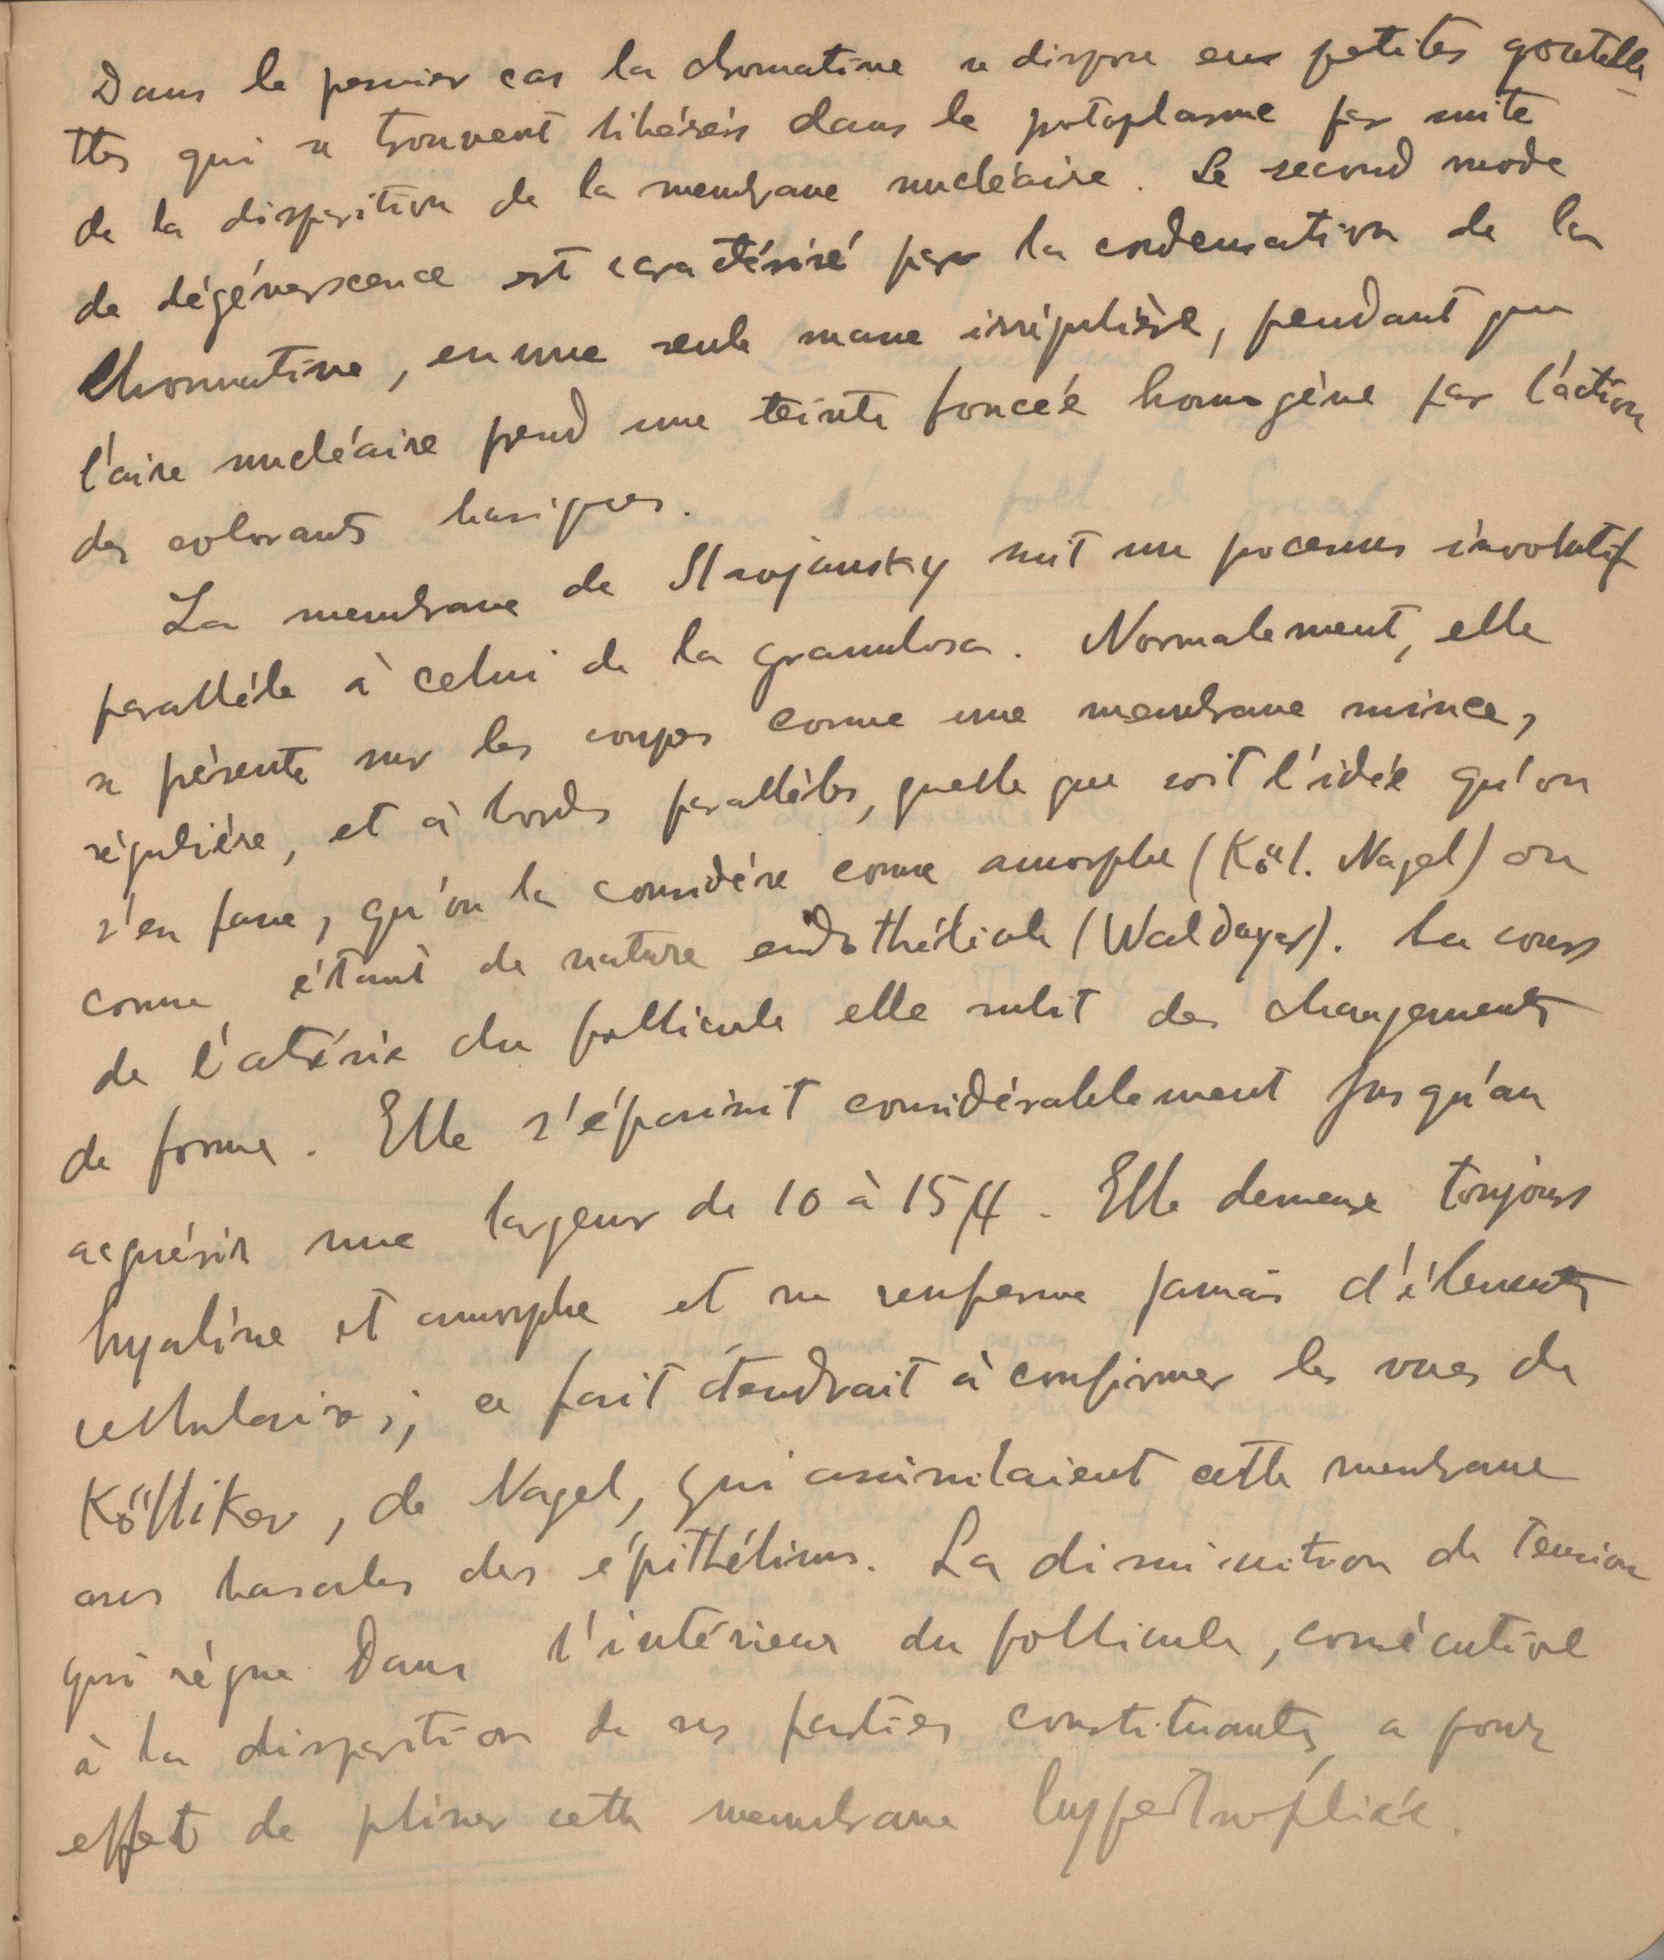 Dans le premier cas la chromatine se dispose en petites goutelle
ttes qui se trouvent libérées dans le protoplasme par suite
de la disparition de la membrane nucléaire. Le second mode
de dégénerscence est caractérisé par la condensation de la
Chromatine, en une seule masse irrégulière, pendant que
l'aire nucléaire prend une teinte foncée homogène par l'action
des colorants basiques.
La membrane de Slavjansky suit un processus involutif
parallèle à celui de la granulosa. Normalement, elle
se présente sur les coupes comme une membrane mince,
régulière, et à bords parallèles, quelle que soit l'idée qu'on
s'en fasse, qu'on la considère comme amorphe (Köl. Nagel) ou
comme étant de nature endothéliale (Waldeyer). Au cours
de l'atrésie du follicule elle subit des changements
de forme. Elle s'épaissit considérablement jusqu'au
acquérir une largeur de 10 à 15 µ. Elle demeure toujours
hyaline et amorphe et ne renferme jamais d'élements
cellulaires; ce fait tendrait à confirmer les vues de
Kölliker, de Nagel, qui assimilaient cette membrane
aux basales des épithéliums. La diminution de tension
qui règne dans l'intérieur du follicule, consécutive
à la disparition de ses parties constituants, a pour
effet de plisser cette membrane hypertrophiée.